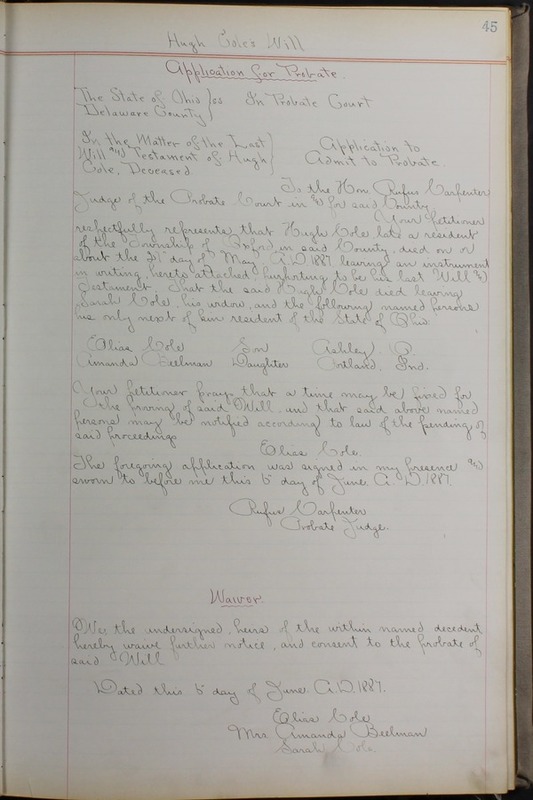 45
Hugh Cole's Will
Application for Probate.
The State of Ohio } ss In Probate Court
Delaware County }
In the Matter of the Last } Application to
Will and Testament of Hugh } Admit to Probate.
Cole, Deceased
To the Hon Rufus Carpenter
Judge of the Probate Court in and for said County
Your Petitioner
respectfully represents that Hugh Cole late a resident
of the Township of Oxford in said County, died on or
about the day of May A.D. 1887 leaving an instrument
in writing, hereto attached purporting to be his last Will and
Testament. That the said Hugh Cole died leaving
Sarah Cole, his widow, and the following named persons
his only next of kin resident of the State of Ohio.
Elias Cole Son Ashley, O.
Amanda Beelman Daughter Portland, Ind.
Your Petitioner prays that a time may be fixed for
the proving of said Will, and that said above named
persons may be notified according to law of the pending of
said proceedings
Elias Cole.
The foregoing application was signed in my presence and
sworn to before me this 6" day of June. A.D. 1887.
Rufus Carpenter
Probate Judge.
Waivor.
We, the undersigned, heirs of the within named decedent,
hereby waive further notice, and consent to the probate of
said Will
Dated this 6" day of June. A.D. 1887.
Elias Cole
Mrs. Amanda Beelman
Sarah Cole.